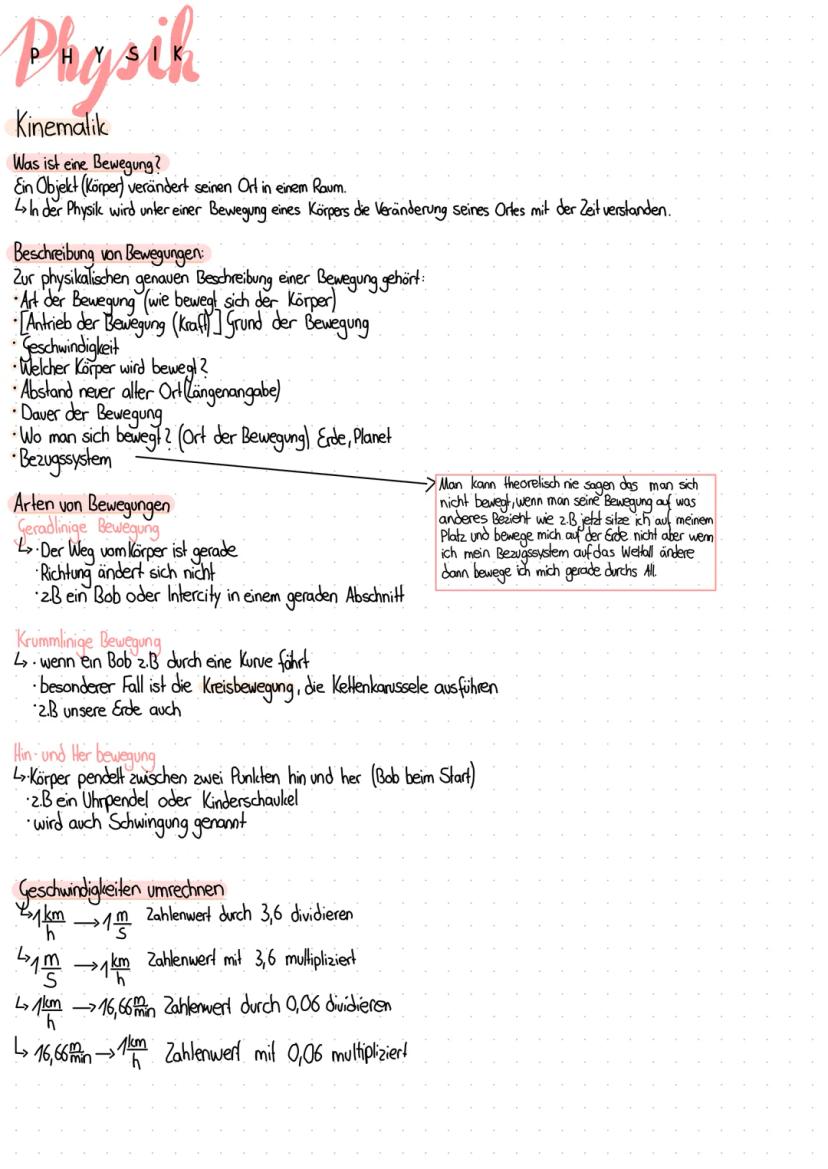 Physik
PHYSIK
Kinematik
Was ist eine Bewegung?
Ein Objekt (Körper) verändert seinen Ort in einem Raum.
↳ In der Physik wird unter einer Bewegung eines Körpers die Veränderung seines Ortes mit der Zeit verstanden.
Beschreibung von Bewegungen:
Zur physikalischen genauen Beschreibung einer Bewegung gehört:
· Art der Bewegung (wie bewegt sich der Körper)
· [Antrieb der Bewegung (Kraft)] Grund der Bewegung
· Geschwindigkeit
· Welcher Körper wird bewegt?
· Abstand neuer alter Ort (Längenangabe)
· Dauer der Bewegung
· Wo man sich bewegt? (Ort der Bewegung) Erde, Planet
· Bezugssystem →
Man kann theoretisch nie sagen das man sich
nicht bewegt, wenn man seine Bewegung auf was
anderes Bezieht wie z.B jetzt sitze ich auf meinem
Platz und bewege mich auf der Erde nicht aber wenn
ich mein Bezugssystem auf das Weltall ändere
dann bewege ich mich gerade durchs All.
Arten von Bewegungen
Geradlinige Bewegung
↳ · Der Weg vom Körper ist gerade
· Richtung ändert sich nicht
· z.B ein Bob oder Intercity in einem geraden Abschnitt
Krummlinige Bewegung
↳ · wenn ein Bob z.B durch eine Kurve fährt
· besonderer Fall ist die Kreisbewegung, die Kettenkarussele ausführen
· z.B unsere Erde auch
Hin- und Her bewegung
↳ · Körper pendelt zwischen zwei Punkten hin und her (Bob beim Start)
· z.B ein Uhrpendel oder Kinderschaukel
· wird auch Schwingung genannt
Geschwindigkeiten umrechnen
↳ 1 km/h → 1 m/s Zahlenwert durch 3,6 dividieren
↳ 1 m/s → 1 km/h Zahlenwert mit 3,6 multipliziert
↳ 1 km/h → 16,66 m/min Zahlenwert durch 0,06 dividieren
↳ 16,66 m/min → 1 km/h Zahlenwert mit 0,06 multipliziert